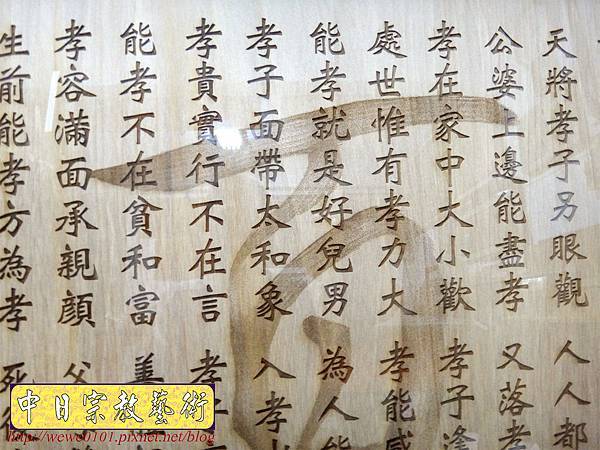 天將孝子另眼觀 人人都
公婆上邊能盡孝 又落孝
孝在家中大小歡 孝子逢
處世惟有孝力大 孝能感
能孝就是好兒男 為人能
孝子面帶太和象 入孝
孝貴實行不在言 孝
能孝不在貧和富 善
孝容滿面承親顏 父
生前能孝方為孝 死
百
中日宗教藝術
http://wewe0101.pixnet.net/blog